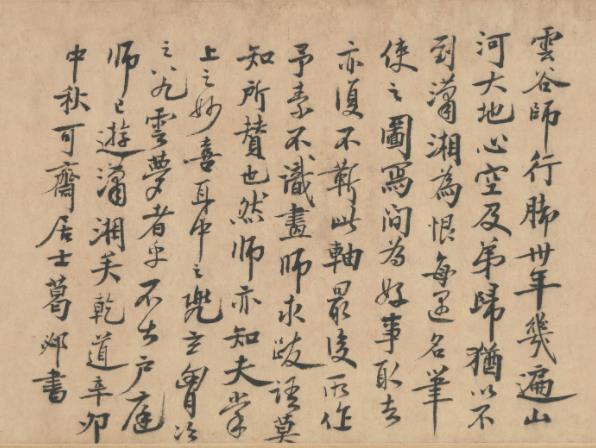 雲谷師行脚卅年幾遍山
河大地心空及第歸猶以不
到瀟湘為恨每遇名筆
使之圖寫間為好事取去
亦復不靳此軸最後所作
予素不識畫師求跋語莫
知所贊也然師亦知夫掌
上之妙喜耳中之兜玄胷次
之九雲夢者乎不出戶庭
師已遊瀟湘矣乾道辛卯
中秋可齋居士葛邲書